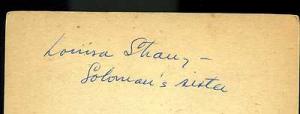 Louisa Shary -
Soloman's sister